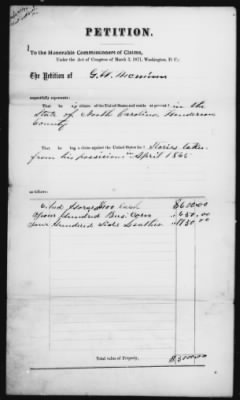 PETITION.
To the Honorable Commissioners of Claims,
Under the Act of Congress of March 3, 1871, Washington, D. C.:
The Petition of G. W.
respectfully represents:
That he is a citizen of the United States and resides at present in the
State of North Carolina Henderson
County
That he has a claim against the United States for Stories taken
from his possession in April 1865
as follows:
Horses $100 Each $600.00
Four Hundred Bus. Corn
Four Hundred Side Leather
Total value of Property,